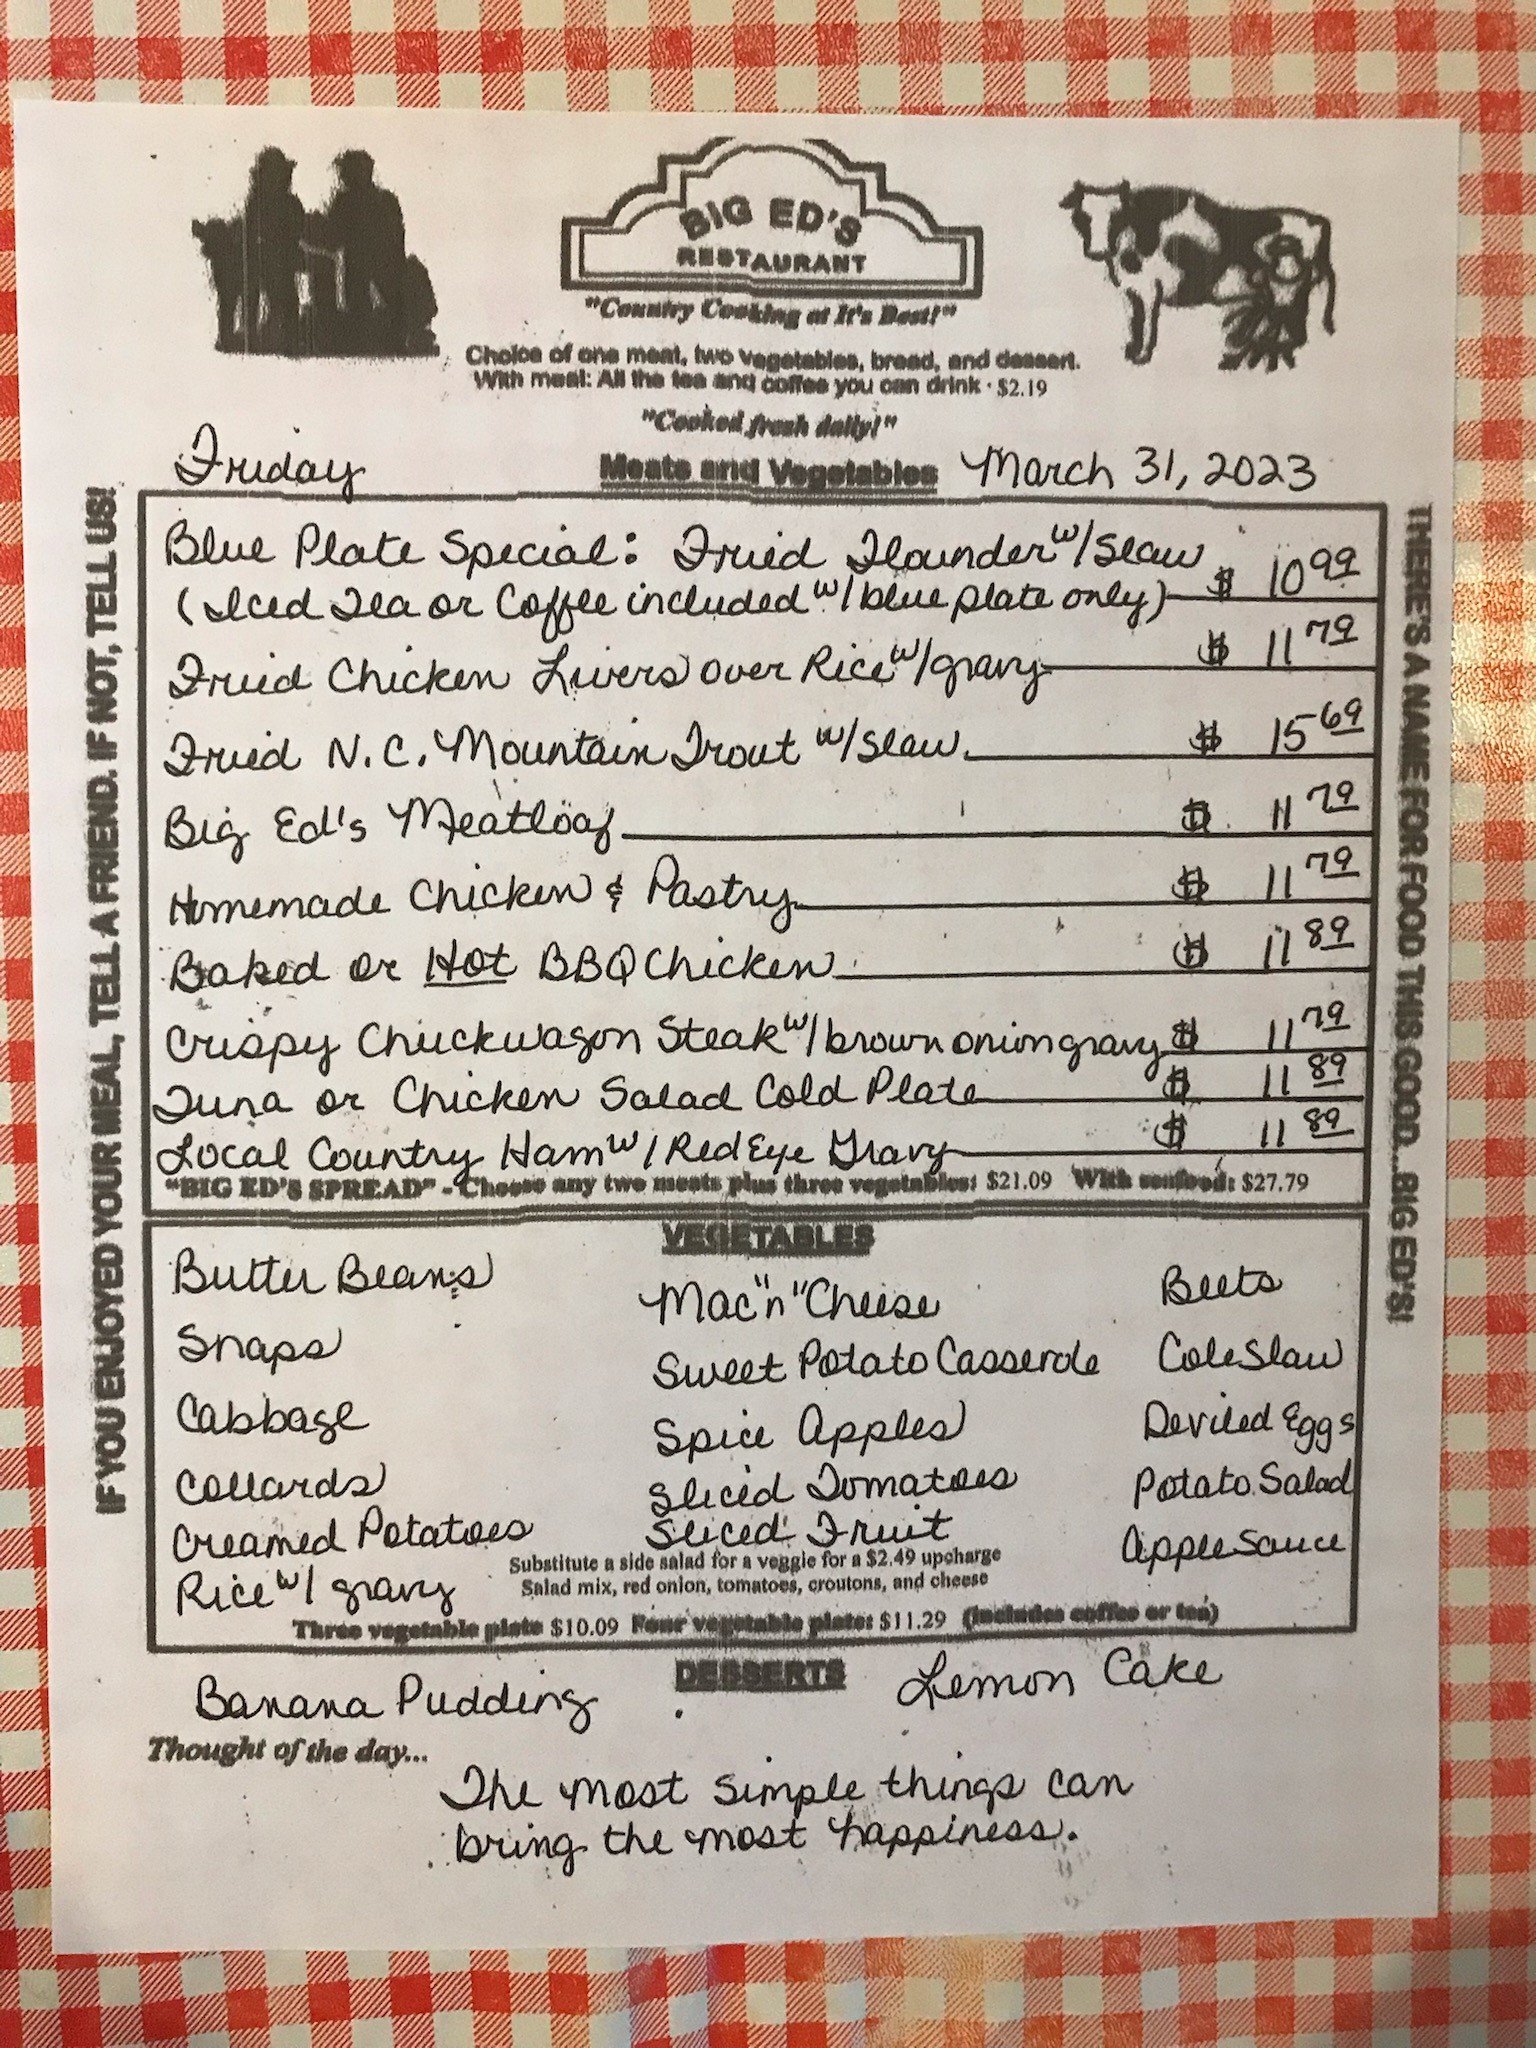 BIG ED'S
RESTAURANT
"Country Cooking at It's Best!"
Choice of one meat, two vegetables, bread, and dessert.
With meal: All the tea and coffee you can drink · $2.19
"Cooked fresh daily!"
Friday Meats and Vegetables March 31, 2023
Blue Plate Special: Fried Flounder w/Slaw
(Iced Tea or Coffee included w/blue plate only) $ 10 99
Fried Chicken Livers over Rice w/gravy $ 11 79
Fried N.C. Mountain Trout w/Slaw $ 15 69
Big Ed's Meatloaf $ 11 79
Homemade Chicken & Pastry $ 11 79
Baked or Hot BBQ Chicken $ 11 89
Crispy Chuckwagon Steak w/brown onion gravy $ 11 79
Tuna or Chicken Salad Cold Plate $ 11 89
Local Country Ham w/Red Eye Gravy $ 11 89
"BIG ED'S SPREAD" - Choose any two meats plus three vegetables: $21.09 With seafood: $27.79
VEGETABLES
Butter Beans Mac "n" Cheese Beets
Snaps Sweet Potato Casserole Cole Slaw
Cabbage Spice Apples Deviled Eggs
Collards Sliced Tomatoes Potato Salad
Creamed Potatoes Sliced Fruit Apple Sauce
Substitute a side salad for a veggie for a $2.49 upcharge
Rice w/ gravy Salad mix, red onion, tomatoes, croutons, and cheese
Three vegetable plate $10.09 Four vegetable plate: $11.29 (includes coffee or tea)
DESSERTS
Banana Pudding Lemon Cake
Thought of the day...
The most simple things can
bring the most happiness.
IF YOU ENJOYED YOUR MEAL, TELL A FRIEND. IF NOT, TELL US!
THERE'S A NAME FOR FOOD THIS GOOD...BIG ED'S!